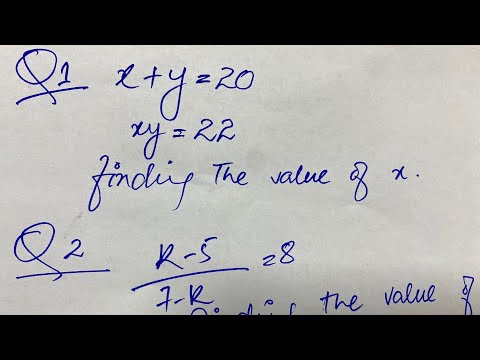 Q1 x+y=20
xy=22
finding The value of x.
Q2 R-5/7-R =8
finding the value of